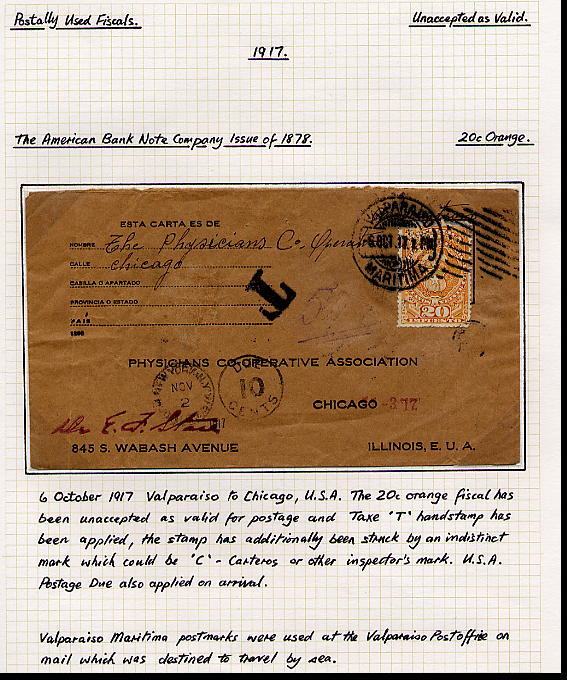 Postally Used Fiscals.
Unaccepted as Valid.
1917.
The American Bank Note Company Issue of 1878.
20c Orange.
ESTA CARTA ES DE
NOMBRE The Physicians Co. Operan
CALLE Chicago
CASILLA O APARTADO
PROVINCIA O ESTADO
PAIS
VALPARAISO
6 OCT 17 1 PM
MARITIMA
20
IMPUESTO
T
PHYSICIANS CO-OPERATIVE ASSOCIATION
NEW YORK
NOV
2
DUE
10
CENTS
CHICAGO -3.'17
Dr E. F.
845 S. WABASH AVENUE
ILLINOIS, E. U. A.
6 October 1917 Valparaiso to Chicago, U.S.A. The 20c orange fiscal has
been unaccepted as valid for postage and Taxe 'T' handstamp has
been applied, the stamp has additionally been struck by an indistinct
mark which could be 'C' - Carteros or other inspector's mark. U.S.A.
Postage Due also applied on arrival.
Valparaiso Maritima postmarks were used at the Valparaiso Postoffice on
mail which was destined to travel by sea.